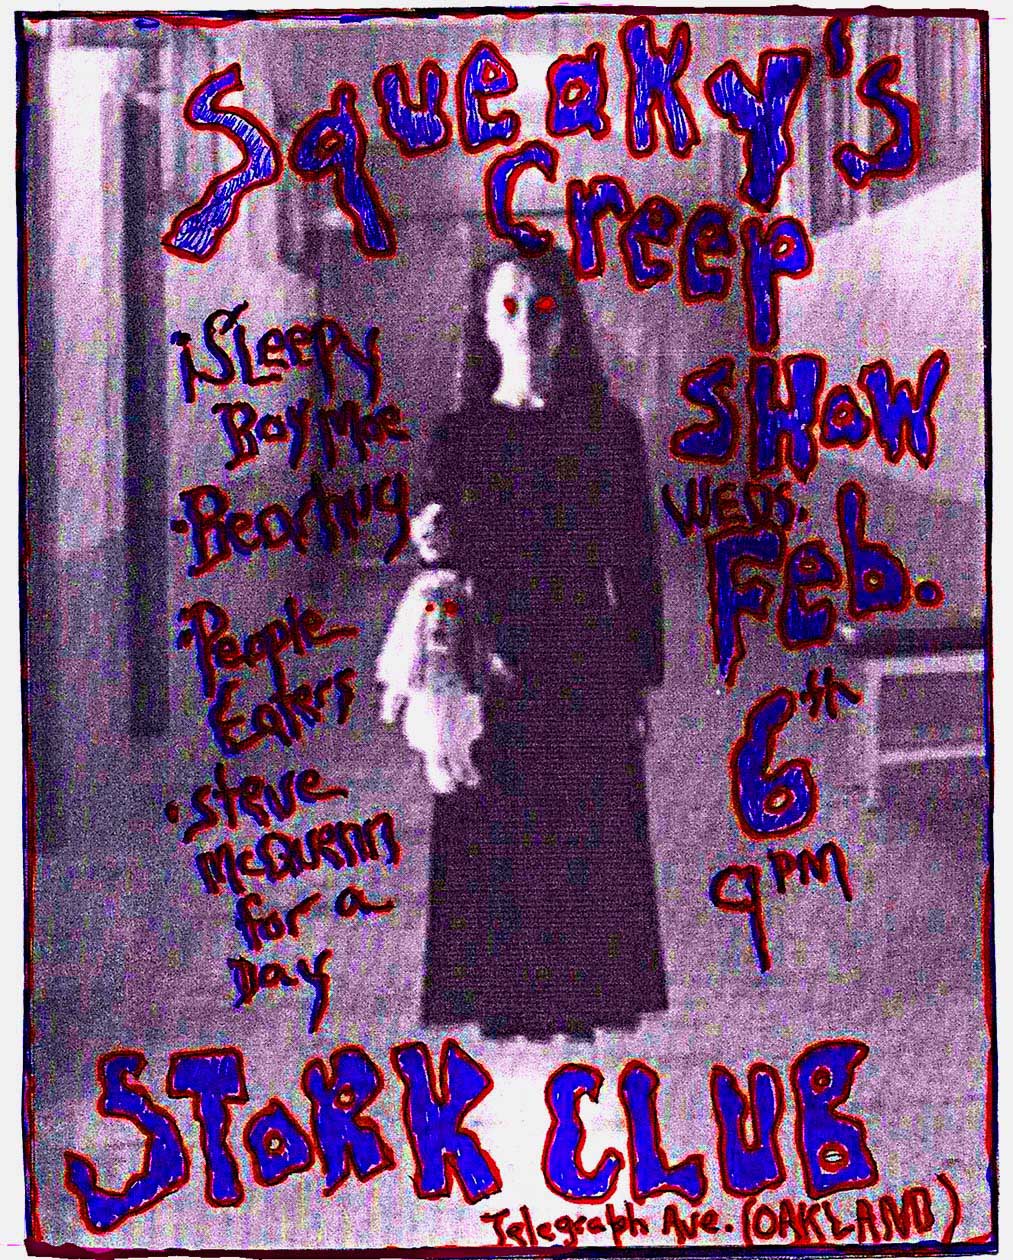 Squeaky's
Creep
SHOW
¡SLeepy
Ray Moe
·Bearhug
·People
Eaters
·Steve
McQuenn
for a
Day
WEDS.
Feb.
6th
9PM
STORK CLUB
Telegraph Ave. (OAKLAND)